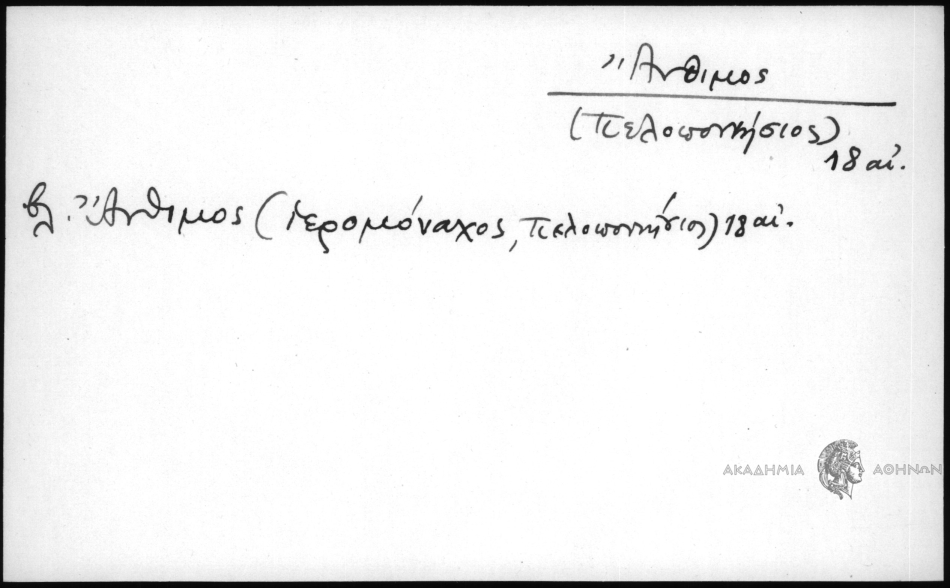 Ἄνθιμος
(Πελοποννήσιος)
18 αἰ.
βλ. Ἄνθιμος (ἱερομόναχος, Πελοποννήσιος) 18 αἰ.
ΑΚΑΔΗΜΙΑ ΑΘΗΝΩΝ